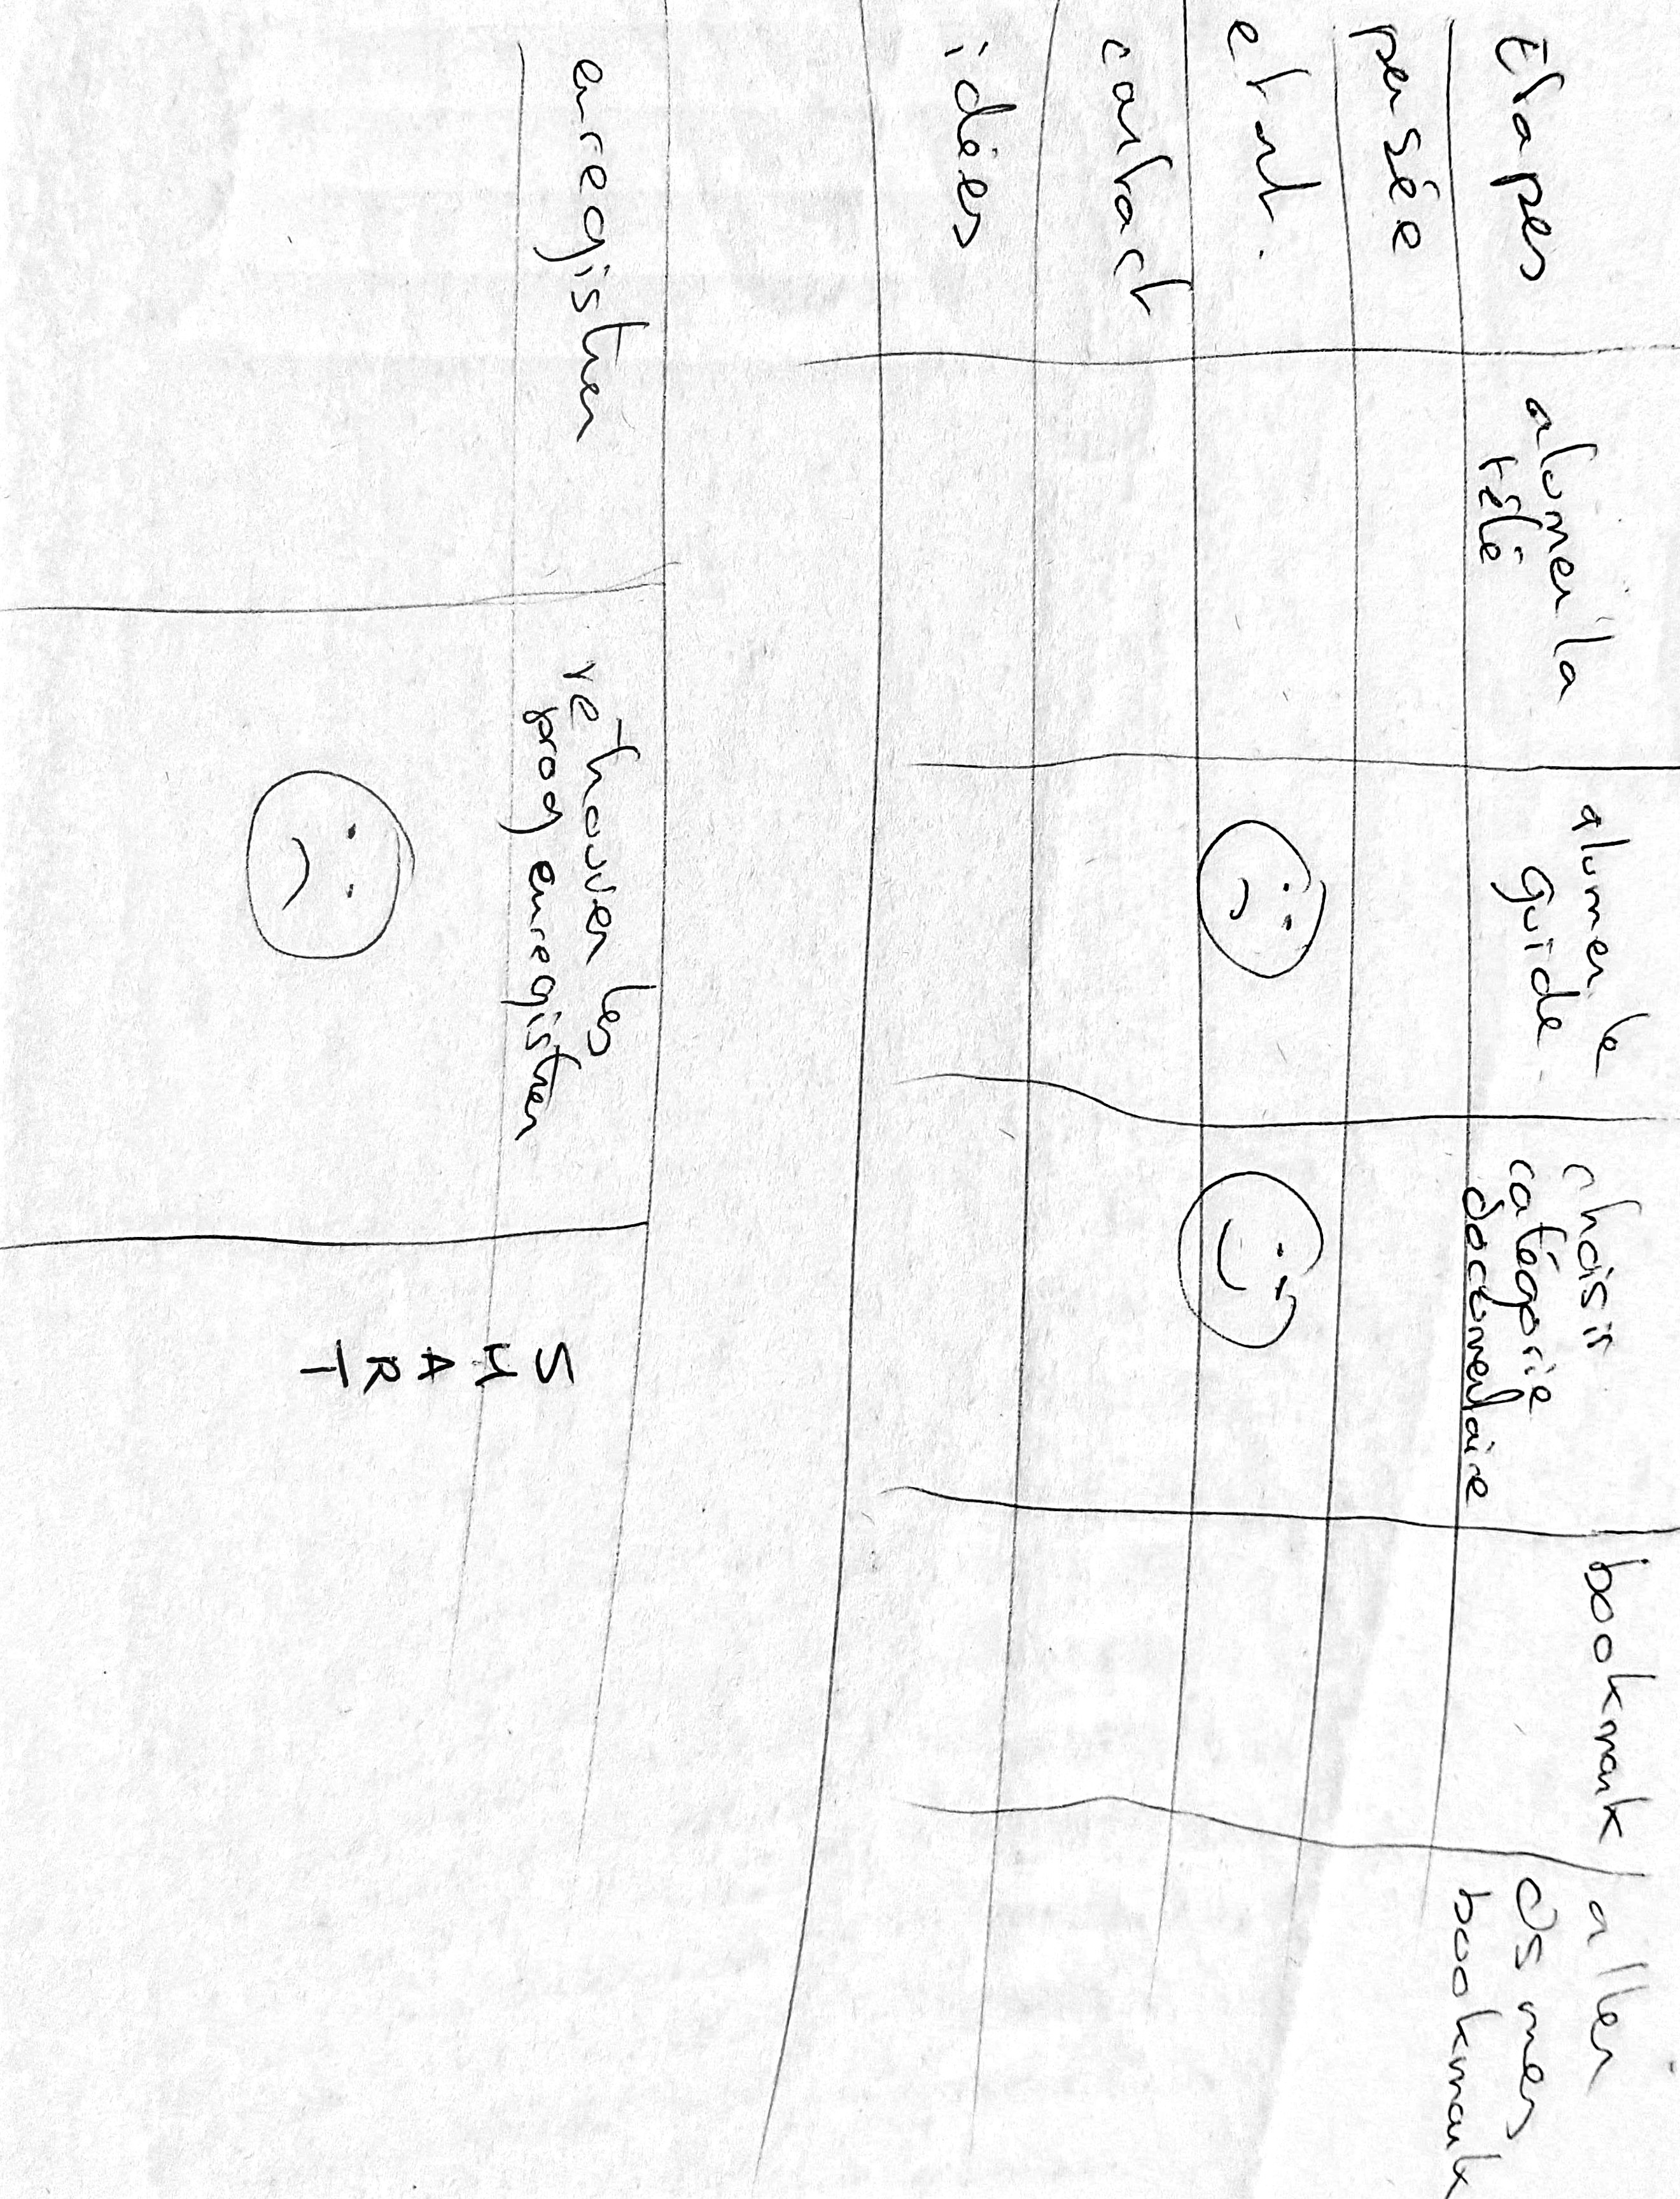 Etapes
alumer la
télé
alumer le
guide
choisir
catégorie
documentaire
bookmark
aller
ds mes
bookmark
pensée
emt.
contact
idées
enregistrer
retrouver les
prog enregistrer
S
M
A
R
T